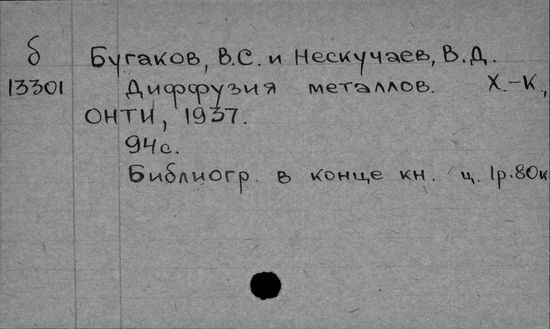 б Бугаков, В.С. и Нескучаев, В.Д.
13301 Диффузия металлов. Х.-К.,
ОНТИ, 1937.
94с.
Библиогр. в конце кн. ц. 1р.80к